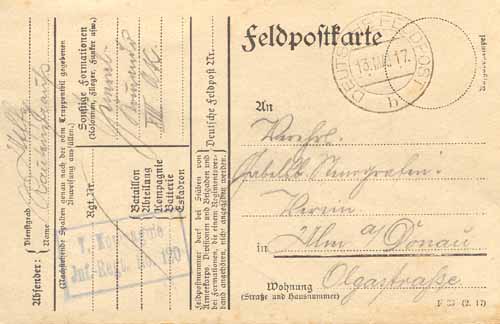 Feldpostkarte
DEUTSCHE FELDPOST
13.
17.
b
An
Verehrl.
Verein
in Ulm a/ Donau
Olgastraße
Wohnung
(Straße und Hausnummer)
F 33 (2. 17)
Absender:
Dienstgrad
Name
(Nachstehende Spalten genau nach der dem Truppenteil gegebenen Anweisung ausfüllen.)
Rgt. Nr.
Bataillon
Abteilung
Kompagnie
Batterie
Eskadron
Sonstige Formationen
(Kolonnen, Flieger, Funker usw.)
XIII A.K.
Deutsche Feldpost Nr.
Feldpostnummer darf bei Stäben von
Armeekorps, Divisionen und Brigaden und
Formationen, die einem Regimentsver-
band angehören, nicht angegeben werden.
7. Kompagnie
Inf.-Regt. No. 120